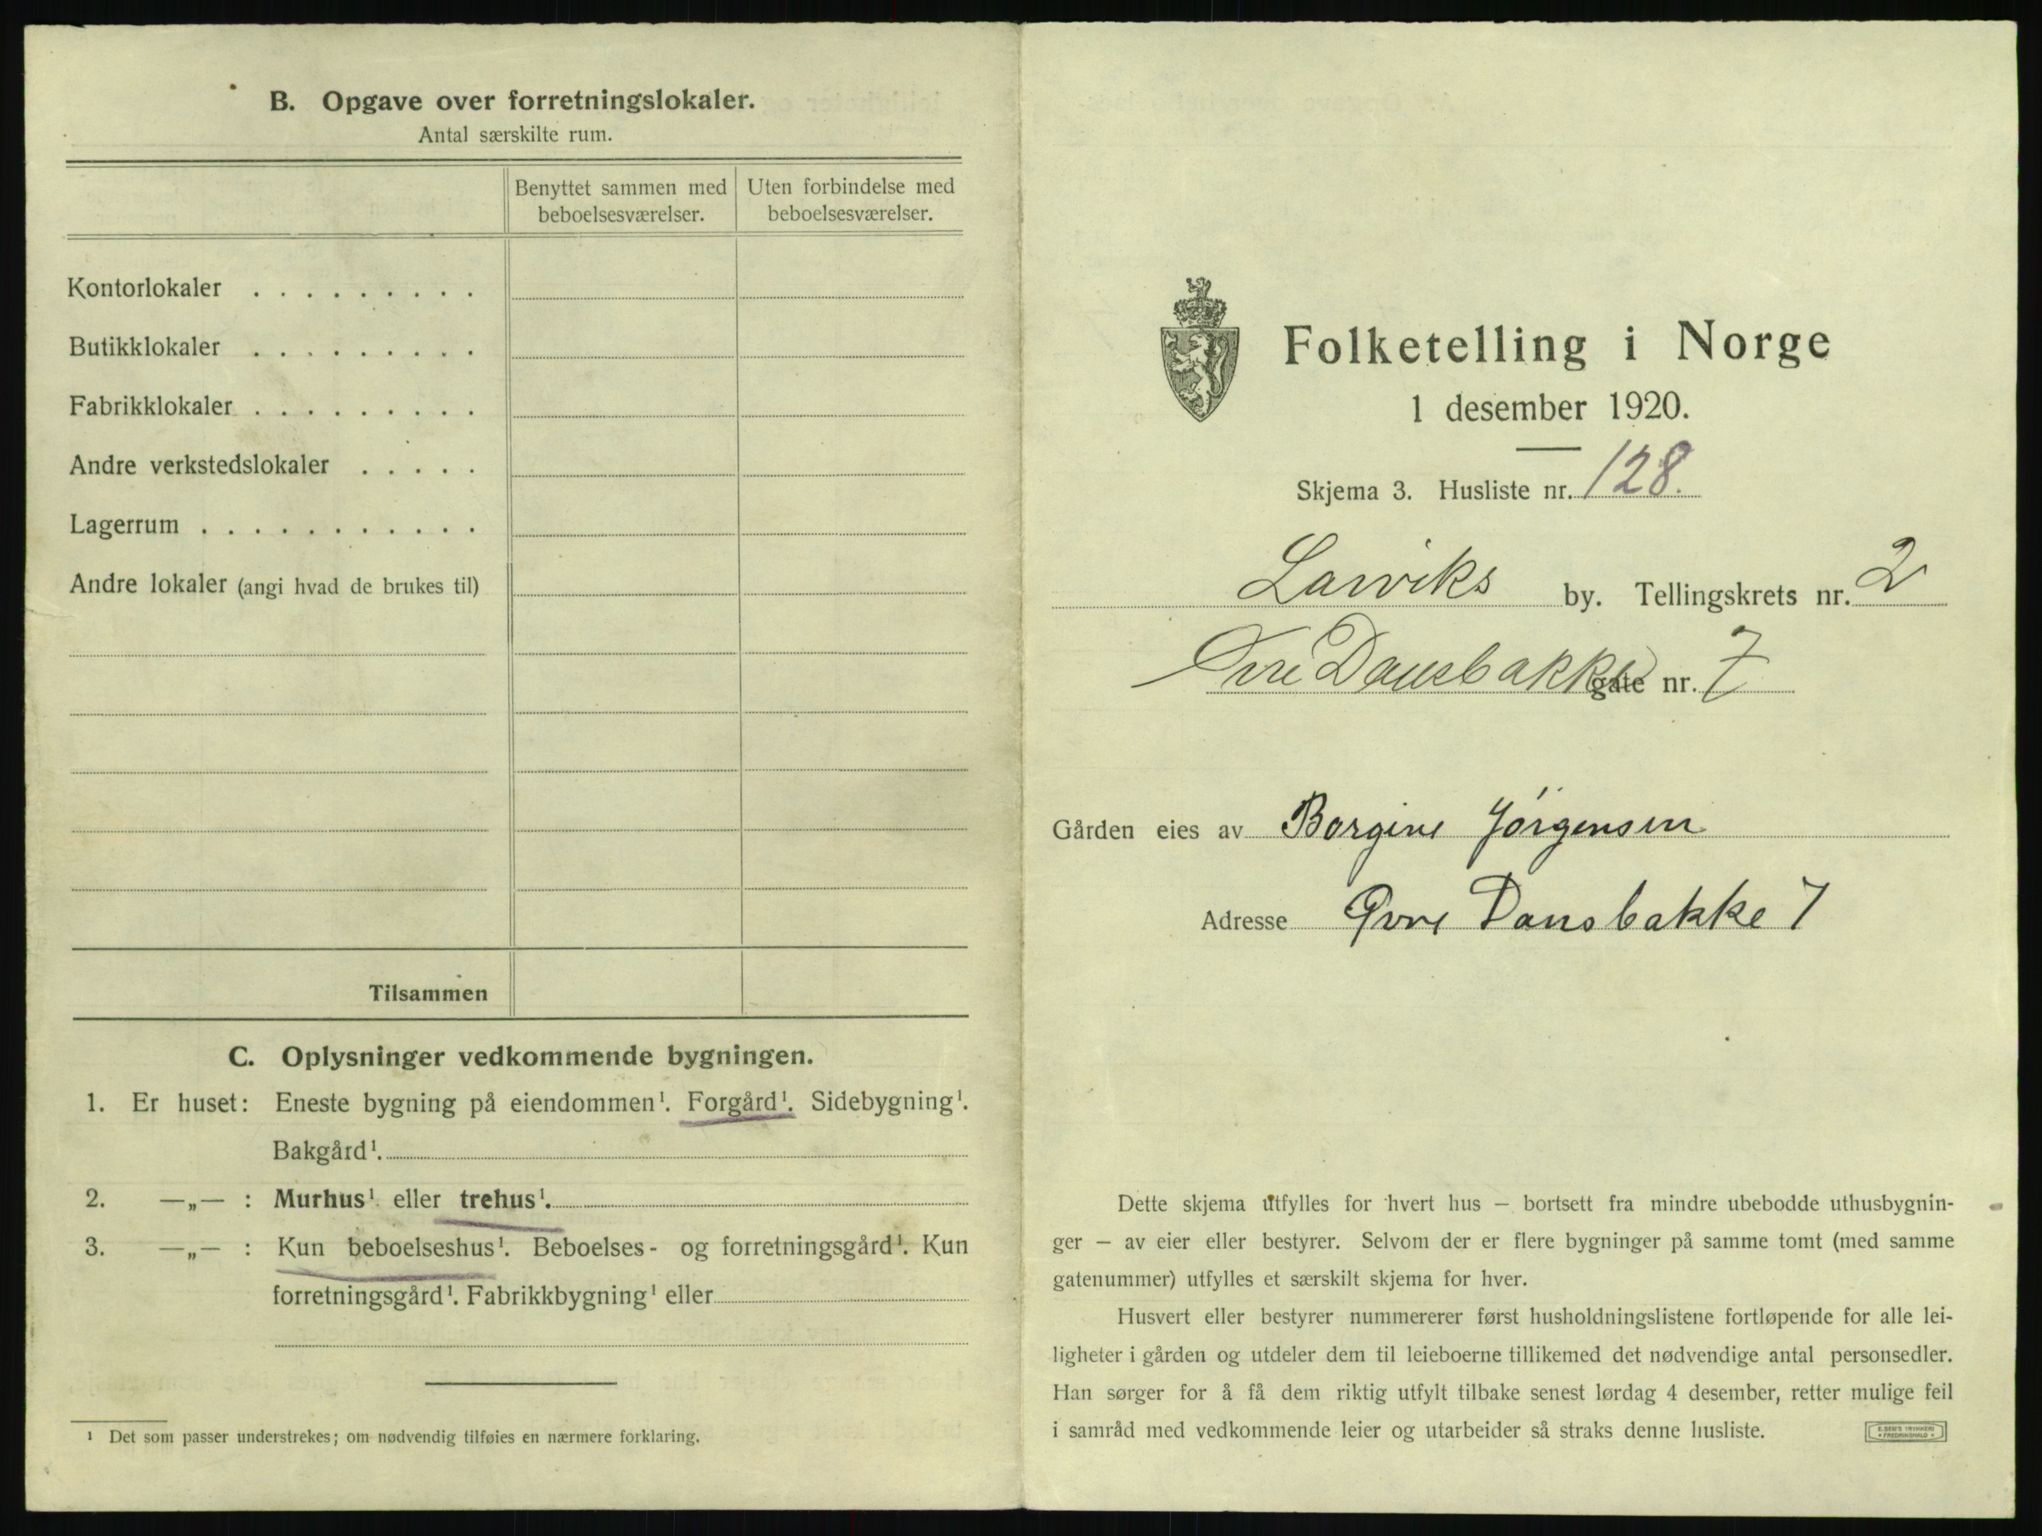 B. Opgave over forretningslokaler.
Antal særskilte rum.
Benyttet sammen med beboelsesværelser.
Uten forbindelse med beboelsesværelser.
Kontorlokaler . . . . . . . . .
Butikklokaler . . . . . . . . .
Fabrikklokaler . . . . . . . . .
Andre verkstedslokaler . . . . .
Lagerrum . . . . . . . . . . .
Andre lokaler (angi hvad de brukes til)
Tilsammen
C. Oplysninger vedkommende bygningen.
1. Er huset: Eneste bygning på eiendommen¹. Forgård¹. Sidebygning¹.
Bakgård¹.
2. —„— : Murhus¹ eller trehus¹.
3. —„— : Kun beboelseshus¹. Beboelses- og forretningsgård¹. Kun
forretningsgård¹. Fabrikkbygning¹ eller
¹ Det som passer understrekes; om nødvendig tilføies en nærmere forklaring.
Folketelling i Norge
1 desember 1920.
Skjema 3. Husliste nr. 128.
Larviks by. Tellingskrets nr. 2
Øvre Dansbakke gate nr. 7
Gården eies av Borgine Jörgensen
Adresse Øvre Dansbakke 7
Dette skjema utfylles for hvert hus — bortsett fra mindre ubebodde uthusbygnin-
ger — av eier eller bestyrer. Selvom der er flere bygninger på samme tomt (med samme
gatenummer) utfylles et særskilt skjema for hver.
Husvert eller bestyrer nummererer først husholdningslistene fortløpende for alle lei-
ligheter i gården og utdeler dem til leieboerne tillikemed det nødvendige antal personsedler.
Han sørger for å få dem riktig utfylt tilbake senest lørdag 4 desember, retter mulige feil
i samråd med vedkommende leier og utarbeider så straks denne husliste.
E. SEM'S TRYKKERI
• FREDRIKSHALD •